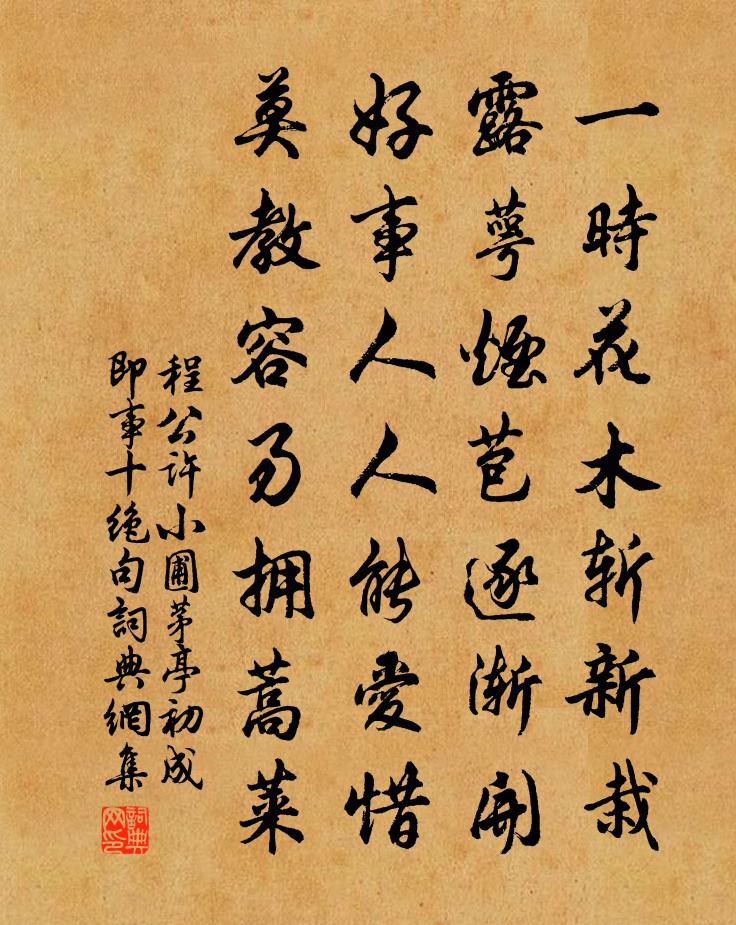 一時花木斬新栽
露萼煙苞逐漸開
好事人人能愛惜
莫教容易擁蒿萊
程公許小圃茅亭初成
即事十絶句詞典網集
詞典网印